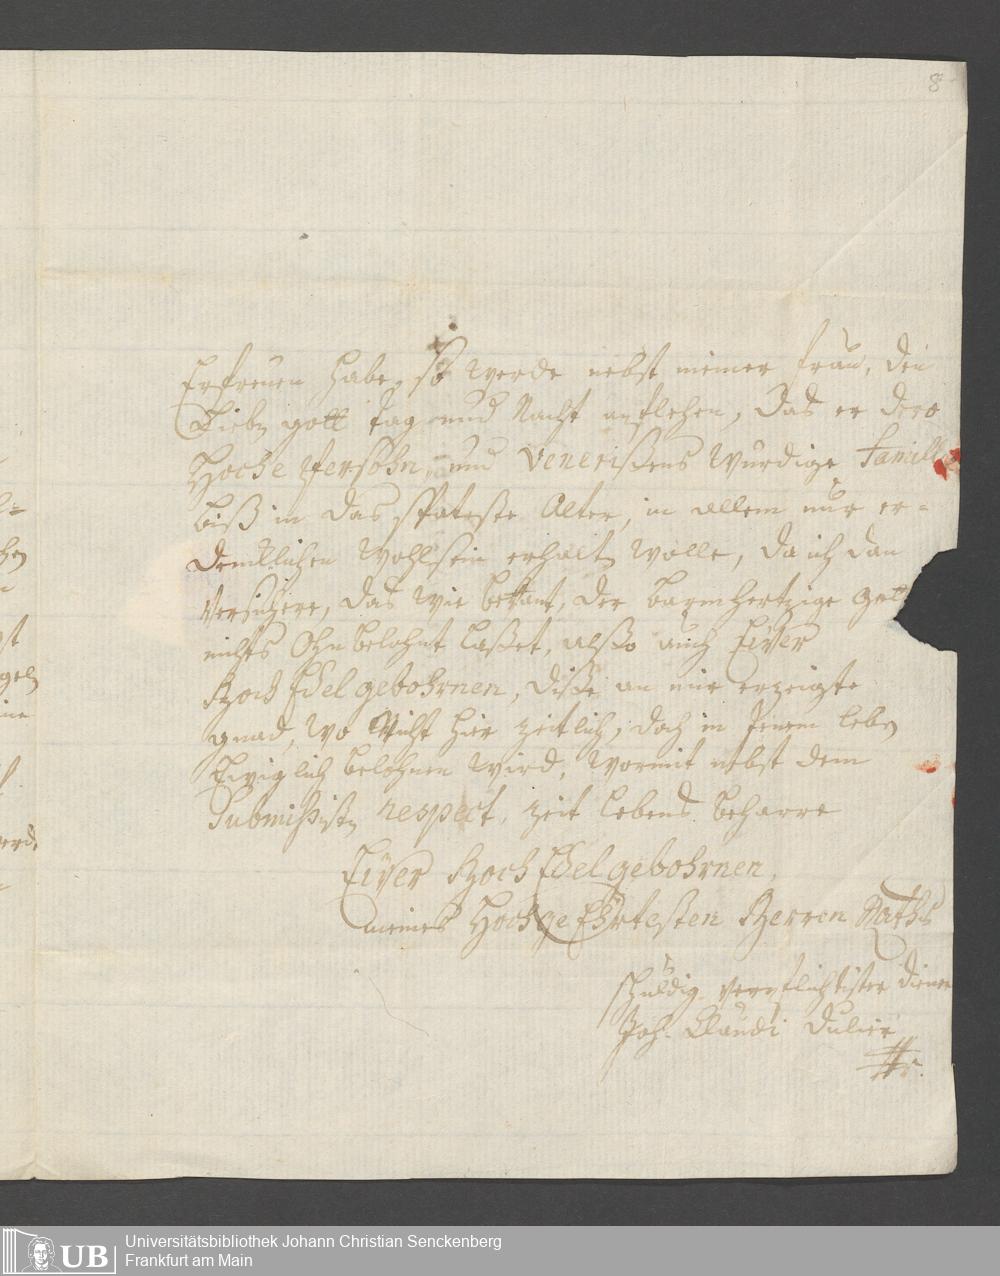 8
Erfreuen habe, so werde nebst meiner frau, den
Lieben gott tag und Nacht anflehen, das er dero
Hoche Persohn, und Venerißens würdige Famill
biß in das spateste Alter, in allem nur er-
denklichen wohlsein erhalten wolle, da ich dan
versichere, das wie bekant, der barmhertzige gott
nichts ohnbelohnt laßet, alßo auch Eüer
Hoch Edel gebohrnen, diße an mir erzeigte
gnad, wo nicht hier zeitlich, doch in Jenem leben
Ewiglich belohnen wird, wormit nebst dem
Submißisten respect, zeit lebens beharre
Eüer Hoch Edel gebohrnen,
meines Hochge Ehrtesten Herren Raths
schuldig verpflichtister diener
Joh. Claudi Dulier
Universitätsbibliothek Johann Christian Senckenberg
UB Frankfurt am Main